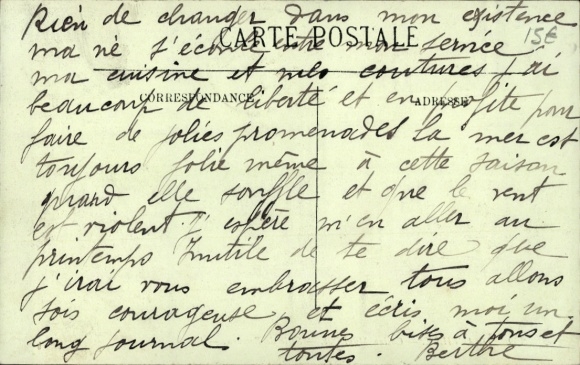 Rien de changer dans mon existence
15€
CARTE POSTALE
ma vie s'écoule entre mon service
ma cuisine et mes coutures j'ai
beaucoup de liberté et en profite pour
CORRESPONDANCE
ADRESSE
faire de jolies promenades la mer est
toujours jolie même à cette saison
quand elle souffle et que le vent
est violent. J'espère m'en aller au
printemps Inutile de te dire que
j'irai vous embrasser tous allons
sois courageuse et écris moi un
long journal. Bonnes bises à tous et
toutes. Berthe